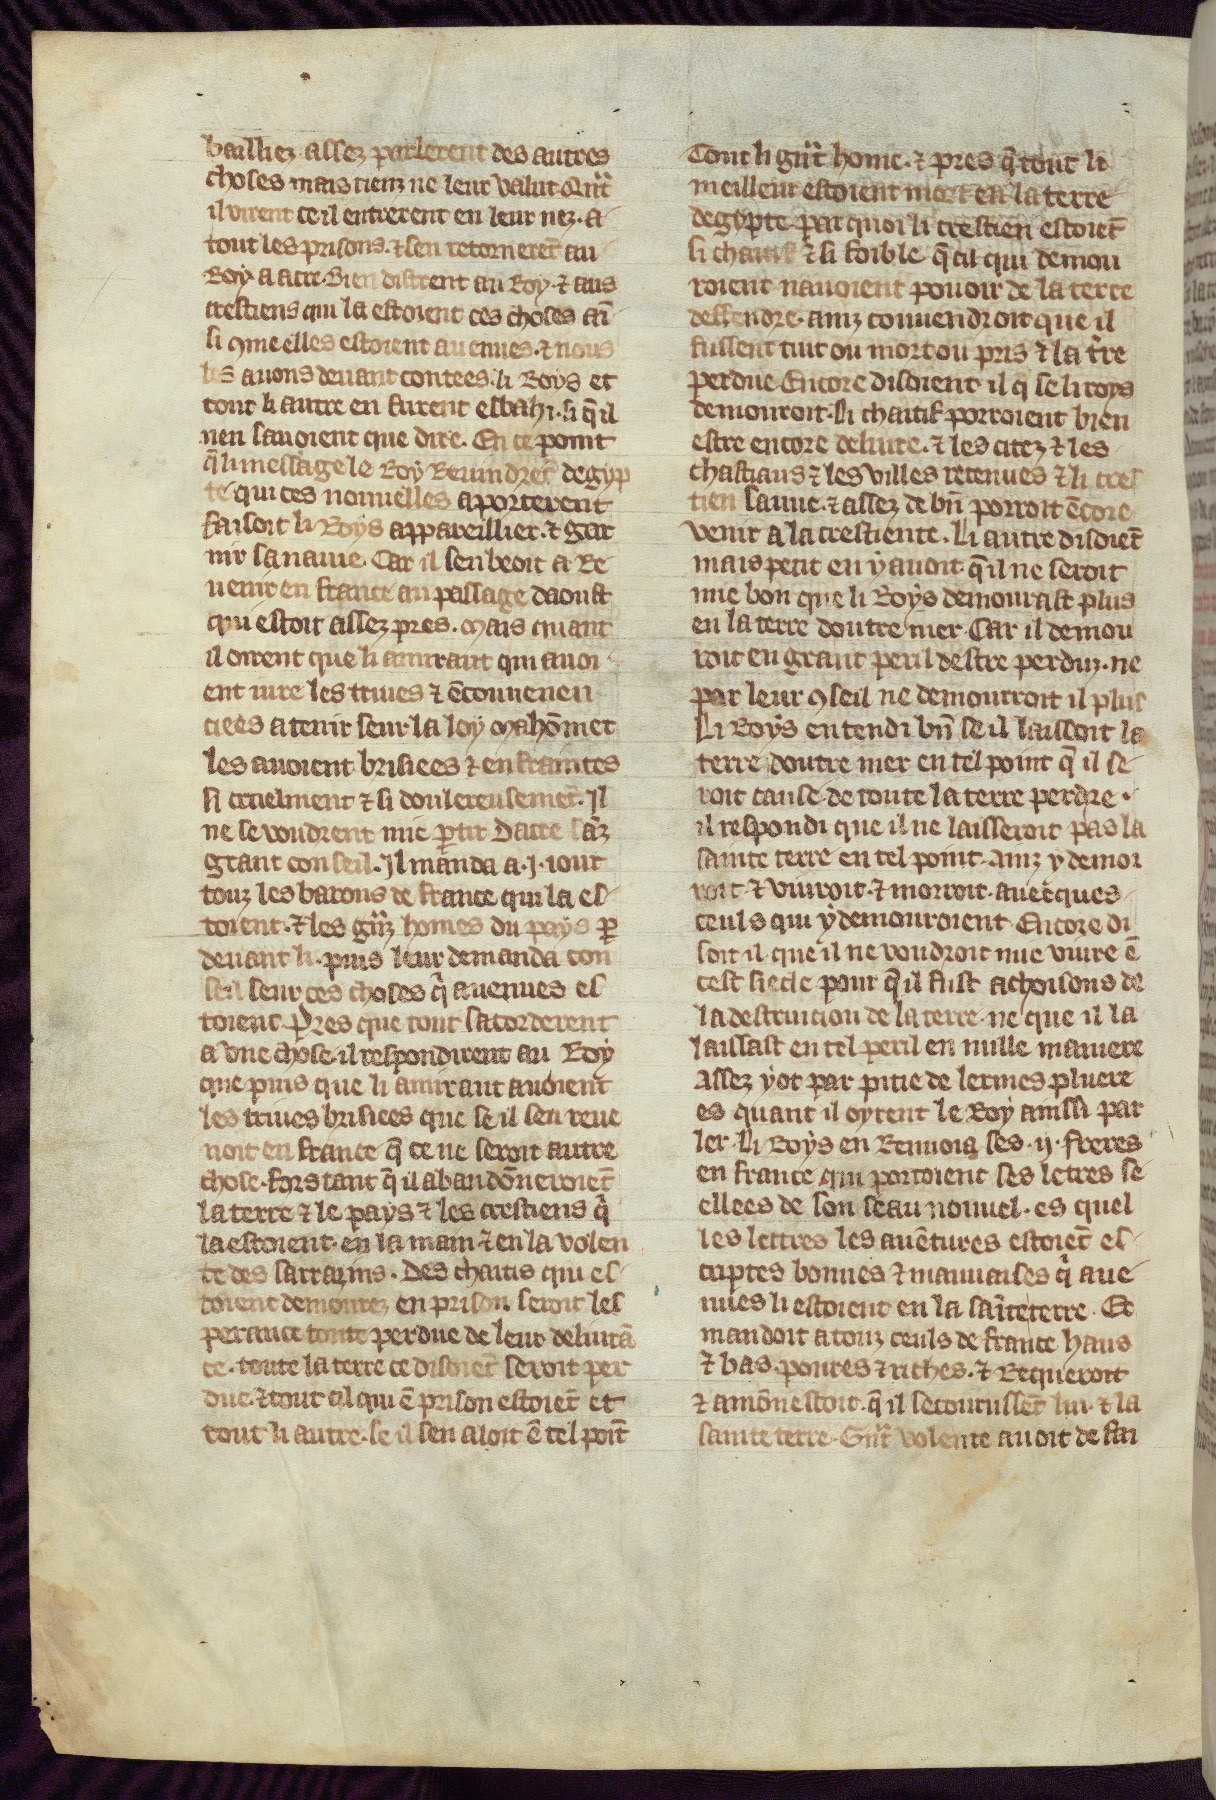 bailliez assez parlerent des autres
choses mais rienz ne leur valut Qñt
il virent ce il entrerent en leur nez · a
tout les prisons · ⁊ sen retornerēt au
Roy a acre · Bien distrent au Roy · ⁊ aus
crestiens qui la estoient ces choses aī
si ꝯme elles estoient auenues · ⁊ nous
les auons deuant contees · li Roys et
tout li autre en furent esbahi · si q̄ il
nen sauoient que dire · En ce point
q̄ li message le Roy Reuindrēt degyp
te qui ces nouuelles aporterent
faisoit li Roys appareillier · ⁊ gar
nir sa nauie · Car il sen beoit a Re
uenir en france au passage daoust
qui estoit assez pres · Mais quant
il oirent que li amiraut qui auoi
ent iure les triues ⁊ ēconuenen
ciees a tenir seur la loy mahōmet
les auoient brisiees ⁊ enfraintes
si cruelment ⁊ si doulereusemēt · Il
ne se voudrent mie ꝑtir Dacre sāz
grant conseil · Il manda a · j · iour
touz les barons de france qui la es
toient · ⁊ les gñz homes du pays ꝑ
deuant li · puis leur demanda con
seil seur ces choses qͥ auenues es
toient · Pres que tout sacorderent
a vne chose · il respondirent au Roy
que puis que li amiraut auoient
les triues brisiees que se il sen reue
noit en france q̄ ce ne seroit autre
chose · fors tant q̄ il abandōneroiēt
la terre ⁊ le pays ⁊ les crestiens qͥ
la estoient · en la main ⁊ en la volen
te des sarrazins · Des chaitis qui es
toient demorez en prison seroit les
perance toute perdue de leur deliurā
ce · toute la terre ce disoiēt seroit per
due · ⁊ tout cil qui ē prison estoiēt et
tout li autre · se il sen aloit ē tel poīt
Tout li gñt home · ⁊ pres q̄ tout li
meilleur estoient mort en la terre
degypte par quoi li crestien estoiēt
si chaitif ⁊ si foible q̄ cil qui demou
roient nauoient pouoir de la terre
deffendre · ainz conuendroit que il
fussent tuit ou mort ou pris ⁊ la tr̄e
perdue Encore disoient il q̄ se li roys
demouroit · Li chaitif porroient bien
estre encore deliure · ⁊ les citez ⁊ les
chastiaus ⁊ les villes retenues ⁊ li cres
tien sauue · ⁊ assez de bn̄ porroit ēcore
venir a la crestiente · Li autre disoiēt
mais petit en y auoit · q̄ il ne seroit
mie bon que li Roys demourast plus
en la terre doutre mer · Car il demou
roit en grant peril destre perduz · ne
par leur ꝯseil ne demourroit il plus
Li Roys entendi bn̄ se il laissoit la
terre doutre mer en tel point q̄ il se
roit cause de toute la terre perdre ·
il respondi que il ne laisseroit pas la
sainte terre en tel point · Ainz y demor
roit ⁊ viuroit · ⁊ morroit · auecques
ceuls qui y demouroient · Encore di
soit il que il ne voudroit mie viure ē
cest siecle pour q̄ il fust achoisons de
la destruicion de la terre · ne que il la
laissast en tel peril en nulle maniere
Assez y ot par pitie de lermes pluere
es quant il oyrent le Roy ainssi par
ler · Li Roys en Renuoia ses · ij · freres
en france qui portoient ses letres se
ellees de son seau nouuel · es quel
les lettres les auētures estoiēt es
criptes bonnes ⁊ mauuaises qͥ aue
nues li estoient en la sāte terre · Et
mandoit a touz ceuls de france haus
⁊ bas · poures ⁊ riches · ⁊ Requeroit
⁊ amōnestoit · q̄ il secourussēt lui · ⁊ la
sainte terre · Gñt volente auoit de fai